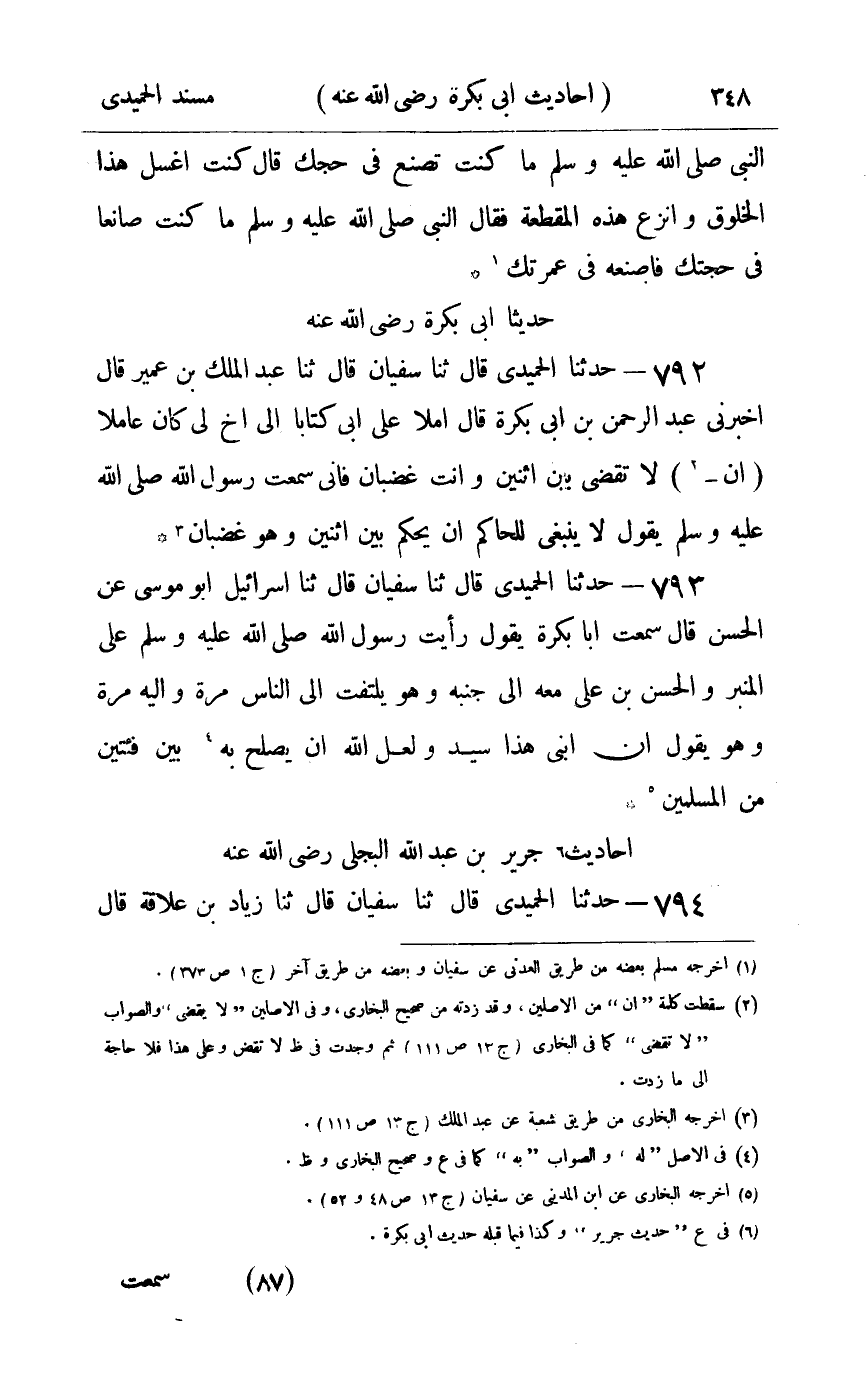 ٣٤٨ ( احاديث ابى بكرة رضى الله عنه ) مسند الحميدى
النبى صلى الله عليه و سلم ما كنت تصنع فى حجك قال كنت اغسل هذا
الخلوق و انزع هذه المقطعة فقال النبى صلى الله عليه و سلم ما كنت صانعا
فى حجتك فاصنعه فى عمرتك ١ *
حديثا ابى بكرة رضى الله عنه
٧٩٢ – حدثنا الحميدى قال ثنا سفيان قال ثنا عبد الملك بن عمير قال
اخبرنى عبد الرحمن بن ابى بكرة قال املا على ابى كتابا الى اخ لى كان عاملا
( ان – ٢ ) لا تقضى بين اثنين و انت غضبان فانى سمعت رسول الله صلى الله
عليه و سلم يقول لا ينبغى للحاكم ان يحكم بين اثنين و هو غضبان ٣ *
٧٩٣ – حدثنا الحميدى قال ثنا سفيان قال ثنا اسرائيل ابو موسى عن
الحسن قال سمعت ابا بكرة يقول رأيت رسول الله صلى الله عليه و سلم على
المنبر و الحسن بن على معه الى جنبه و هو يلتفت الى الناس مرة و اليه مرة
و هو يقول ان ابنى هذا سيد و لعل الله ان يصلح به ٤ بين فئتين
من المسلمين ٥ *
احاديث٦ جرير بن عبد الله البجلى رضى الله عنه
٧٩٤ – حدثنا الحميدى قال ثنا سفيان قال ثنا زياد بن علاقة قال
(١) اخرجه مسلم بعضه من طريق العدنى عن سفيان و بعضه من طريق آخر ( ج ١ ص ٣٧٣ ) .
(٢) سقطت كلمة ”ان“ من الاصلين ، و قد زدته من صحيح البخارى ، و فى الاصلين ”لا يقضى“ والصواب
”لا تقضى“ كما فى البخارى ( ج ١٣ ص ١١١ ) ثم وجدت فى ظ لا تقض و على هذا فلا حاجة
الى ما زدت .
(٣) اخرجه البخارى من طريق شعبة عن عبد الملك ( ج ١٣ ص ١١١ ) .
(٤) فى الاصل ”له ‘ و الصواب ”به“ كما فى ع و صحيح البخارى و ظ .
(٥) اخرجه البخارى عن ابن المدينى عن سفيان ( ج ١٣ ص ٤٨ و ٥٢ ) .
(٦) فى ع ”حديث جرير“ و كذا فيما قبله حديث ابى بكرة .
(٨٧) سمعت